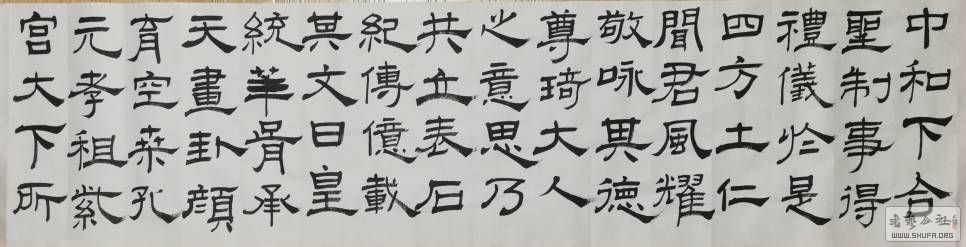 中和下合
聖制事得
禮儀於是
四方土仁
聞君風耀
敬咏其德
尊琦大人
之意思乃
共立表石
紀傳億載
其文曰皇
統華胥承
天畫卦顏
育空桒孔
元孝祖紫
宮大下所
書藝公社
WWW.SHUFR.ORG